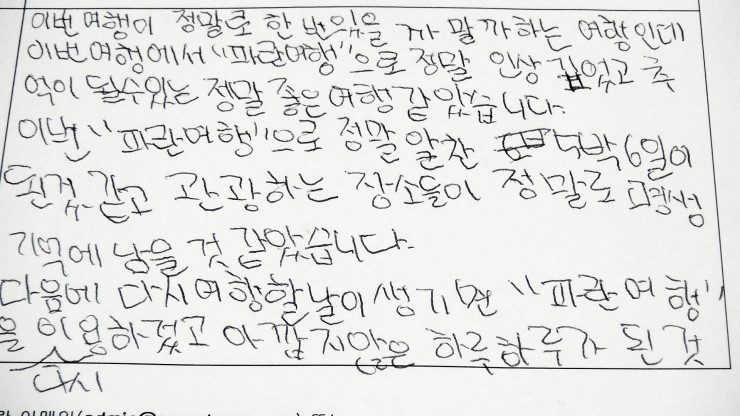 이번 여행이 정말로 한 번있을 까 말까하는 여행인데
이번여행에서 "파란여행"으로 정말 인상 깊었고 추
억이 될수있는 정말 좋은여행 같았습니다.
이번 "파란여행"으로 정말 알찬 5박6일이
된것 같고 관광하는 장소들이 정말로 평생
기억에 남을 것 같았습니다.
다음에 다시여행할날이생기면 "파란여행"
을 이용하겠고 아깝지않은 하루하루가 된 것
다시